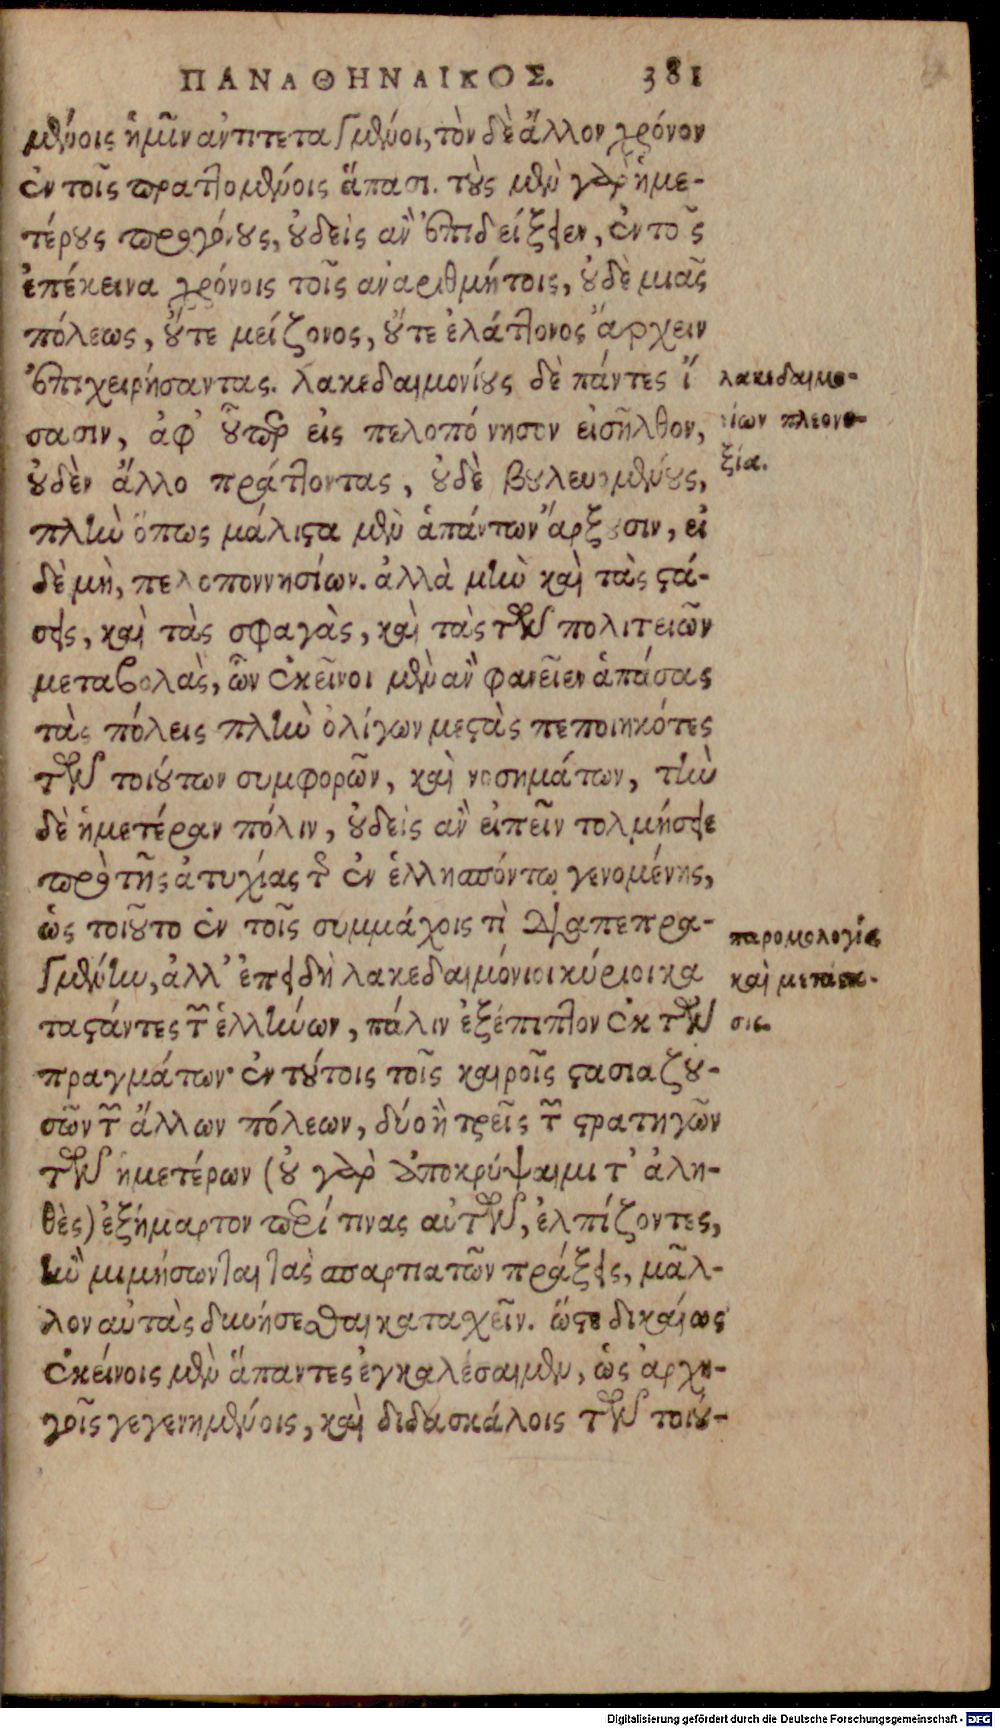 ΠΑΝΑΘΗΝΑΙΚΟΣ. 381
μένοις ἡμῖν ἀντιτεταγμένοι, τὸν δὲ ἄλλον χρόνον
ἐν τοῖς πραττομένοις ἅπασι. τοὺς μὲν γὰρ ἡμε-
τέρους προγόνους, οὐδεὶς ἂν ἐπιδείξειεν, ἐν τοῖς
ἐπέκεινα χρόνοις τοῖς ἀναριθμήτοις, οὐδὲ μιᾶς
πόλεως, οὔτε μείζονος, οὔτε ἐλάττονος ἄρχειν
ἐπιχειρήσαντας. λακεδαιμονίους δὲ πάντες ἴ
σασιν, ἀφ' οὗπερ εἰς πελοπόννησον εἰσῆλθον,
οὐδὲν ἄλλο πράττοντας, οὐδὲ βουλευομένους,
πλὴν ὅπως μάλιστα μὲν ἁπάντων ἄρξουσιν, εἰ
δὲ μὴ, πελοποννησίων. ἀλλὰ μὴν καὶ τὰς στά-
σεις, καὶ τὰς σφαγὰς, καὶ τὰς τῶν πολιτειῶν
μεταβολὰς, ὧν ἐκεῖνοι μὲν ἂν φανεῖεν ἁπάσας
τὰς πόλεις πλὴν ὀλίγων μεστὰς πεποιηκότες
τῶν τοιούτων συμφορῶν, καὶ νοσημάτων, τὴν
δὲ ἡμετέραν πόλιν, οὐδεὶς ἂν εἰπεῖν τολμήσειε
πρὸ τῆς ἀτυχίας τῆς ἐν ἑλλησπόντῳ γενομένης,
ὡς τοιοῦτο ἐν τοῖς συμμάχοις τὶ διαπεπρα-
γμένην, ἀλλ' ἐπειδὴ λακεδαιμόνιοι κύριοι κα
ταστάντες τῶν ἑλλήνων, πάλιν ἐξέπιπτον ἐκ τῶν
πραγμάτων· ἐν τούτοις τοῖς καιροῖς στασιαζου-
σῶν τῶν ἄλλων πόλεων, δύο ἢ τρεῖς τῶν στρατηγῶν
τῶν ἡμετέρων (οὐ γὰρ ἀποκρύψαιμι τ' ἀλη-
θὲς) ἐξήμαρτον περί τινας αὐτῶν, ἐλπίζοντες,
ἢν μιμήσωνται τὰς σπαρτιατῶν πράξεις, μᾶλ-
λον αὐτὰς δυνήσεσθαι κατασχεῖν. ὥστε δικαίως
ἐκείνοις μὲν ἅπαντες ἐγκαλέσαιμεν, ὡς ἀρχη-
γοῖς γεγενημένοις, καὶ διδασκάλοις τῶν τοιού-
λακεδαιμο-
νίων πλεονε-
ξία.
παρομολογία
καὶ μετάστα-
σις.